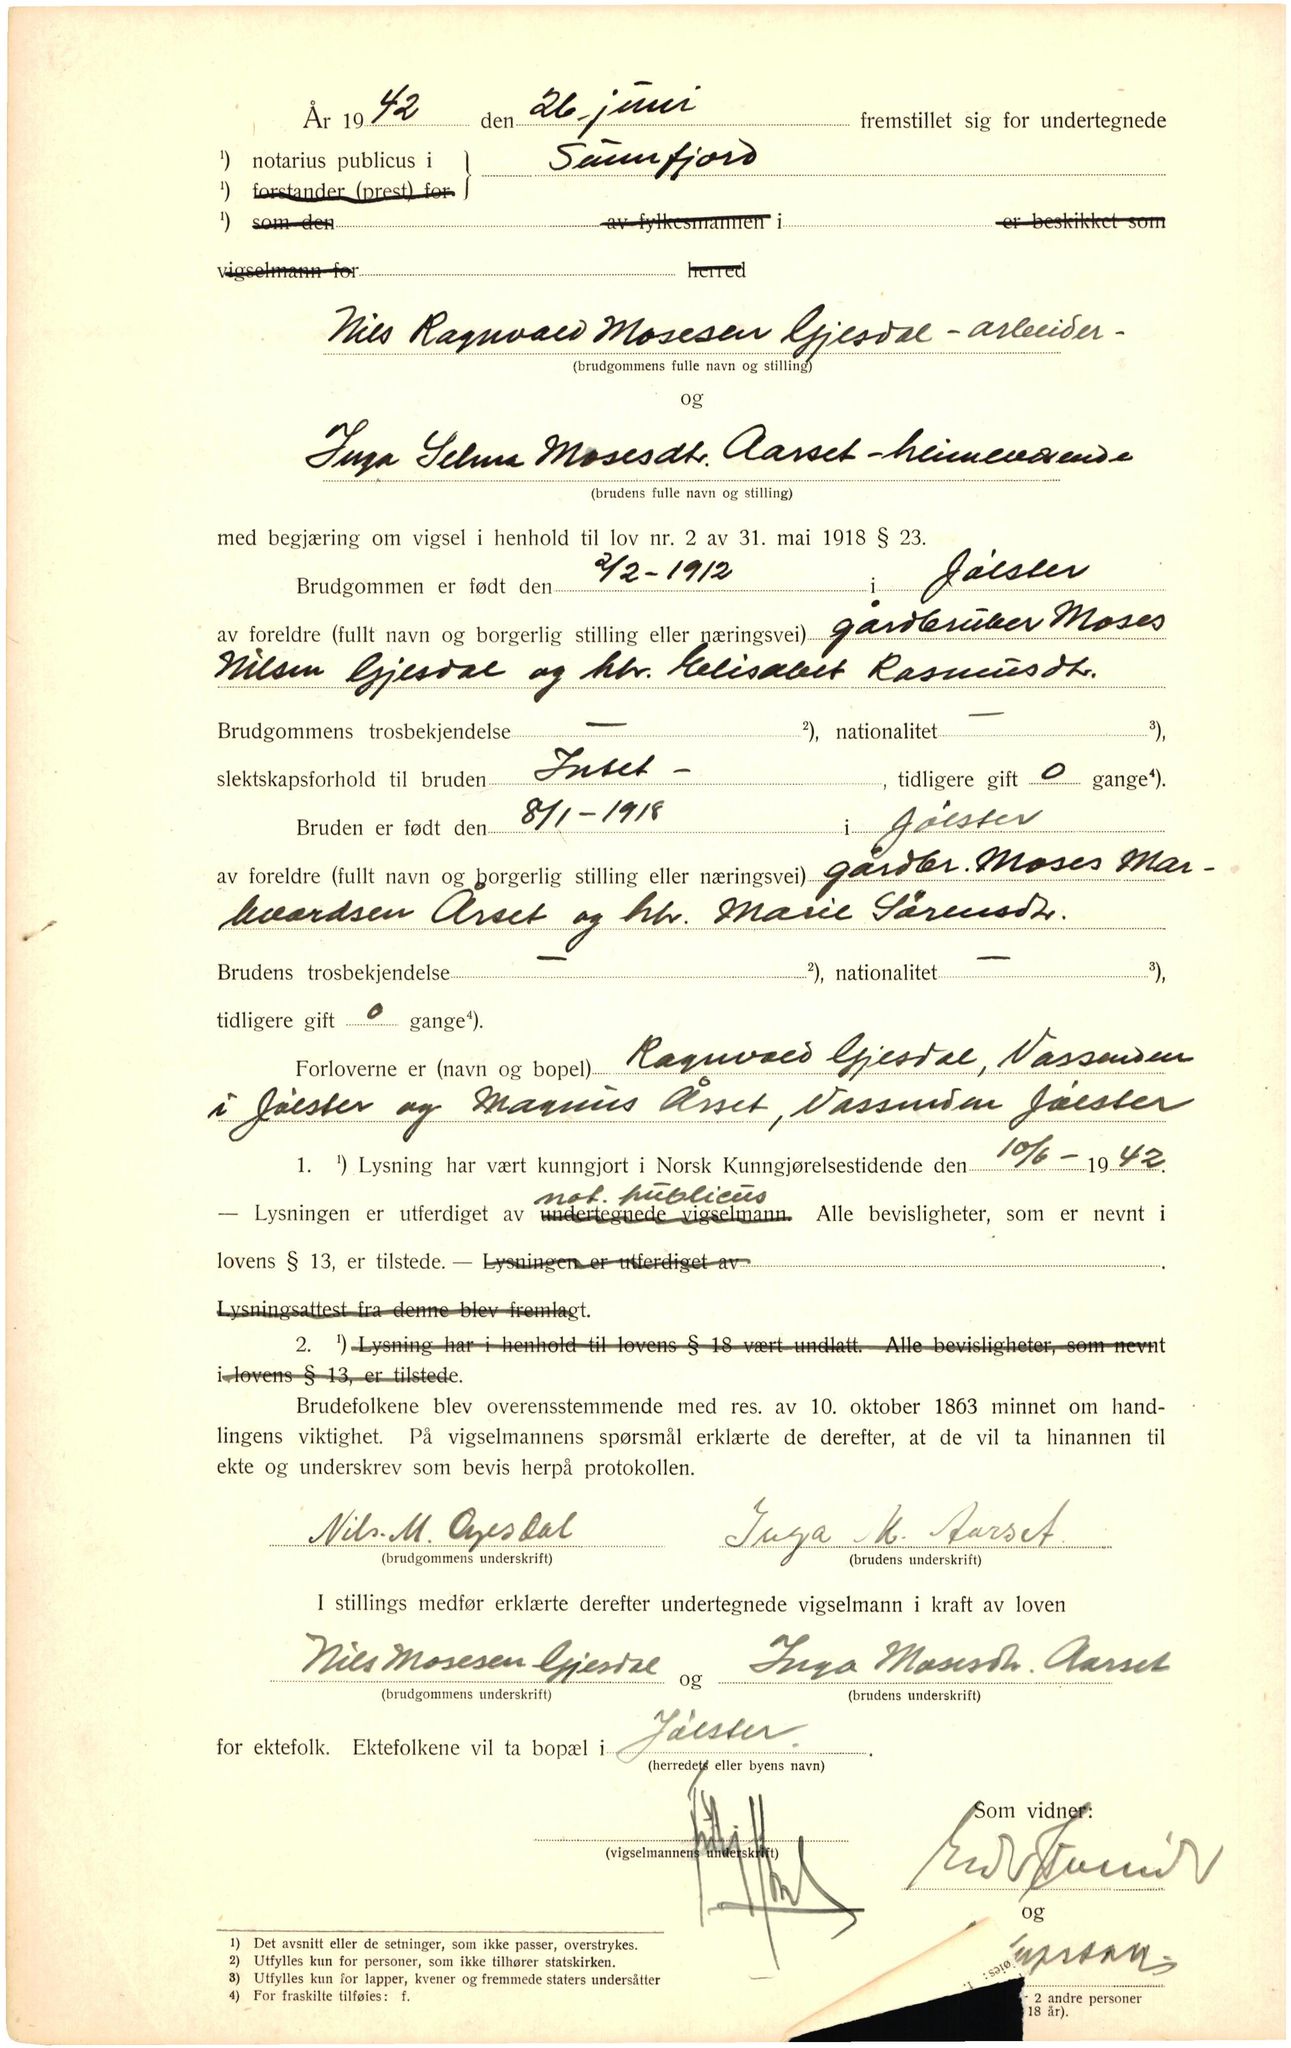 År 1942 den 26. juni fremstillet sig for undertegnede
¹) notarius publicus i } Sunnfjord
¹) forstander (prest) for
¹) som den av fylkesmannen i er beskikket som
vigselmann for herred
Nils Ragnvald Mosesen Gjesdal - arbeider -
(brudgommens fulle navn og stilling)
og
Inga Selma Mosesdtr. Aarset - heimeværende
(brudens fulle navn og stilling)
med begjæring om vigsel i henhold til lov nr. 2 av 31. mai 1918 § 23.
Brudgommen er født den 2/2 - 1912 i Jölster
av foreldre (fullt navn og borgerlig stilling eller næringsvei) gårdbruker Moses
Nilsen Gjesdal og htr. Elisabet Rasmusdtr.
Brudgommens trosbekjendelse — ²), nationalitet — ³),
slektskapsforhold til bruden Intet - , tidligere gift 0 gange⁴).
Bruden er født den 8/1 - 1918 i Jölster
av foreldre (fullt navn og borgerlig stilling eller næringsvei) gårdbr. Moses Mar-
kvardsen Årset og htr. Marie Sörensdtr.
Brudens trosbekjendelse — ²), nationalitet — ³),
tidligere gift 0 gange⁴).
Forloverne er (navn og bopel) Ragnvald Gjesdal, Vassenden
i Jölster og Magnus Årset, Vassenden Jölster
1. ¹) Lysning har vært kunngjort i Norsk Kunngjørelsestidende den 10/6 - 1942.
not. publicus
— Lysningen er utferdiget av undertegnede vigselmann. Alle bevisligheter, som er nevnt i
lovens § 13, er tilstede. — Lysningen er utferdiget av .
Lysningsattest fra denne blev fremlagt.
2. ¹) Lysning har i henhold til lovens § 18 vært undlatt. Alle bevisligheter, som nevnt
i lovens § 13, er tilstede.
Brudefolkene blev overensstemmende med res. av 10. oktober 1863 minnet om hand-
lingens viktighet. På vigselmannens spørsmål erklærte de derefter, at de vil ta hinannen til
ekte og underskrev som bevis herpå protokollen.
Nils. M. Gjesdal Inga M. Aarset.
(brudgommens underskrift) (brudens underskrift)
I stillings medfør erklærte derefter undertegnede vigselmann i kraft av loven
Nils Mosesen Gjesdal og Inga Mosesdtr. Aarset
(brudgommens underskrift) (brudens underskrift)
for ektefolk. Ektefolkene vil ta bopæl i Jölster.
(herredets eller byens navn)
Som vidner:
(vigselmannens underskrift)
og
1) Det avsnitt eller de setninger, som ikke passer, overstrykes.
2) Utfylles kun for personer, som ikke tilhører statskirken.
3) Utfylles kun for lapper, kvener og fremmede staters undersåtter
4) For fraskilte tilføies: f.
2 andre personer
18 år).